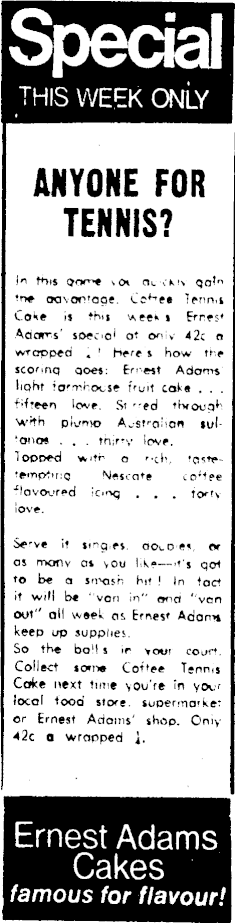 Special
THIS WEEK ONLY
ANYONE FOR
TENNIS?
In this game you quickly gain
the advantage. Coffee Tennis
Cake is this week's Ernest
Adams' special at only 42c a
wrapped ½! Here's how the
scoring goes: Ernest Adams'
light farmhouse fruit cake . . .
fifteen love. Stirred through
with plump Australian sul-
tanas . . . thirty love.
Topped with a rich, taste-
tempting Nescafe coffee
flavoured icing . . . forty
love.
Serve it singles, doubles, or
as many as you like—it's got
to be a smash hit! In fact
it will be "van in" and "van
out" all week as Ernest Adams
keep up supplies.
So the ball's in your court.
Collect some Coffee Tennis
Cake next time you're in your
local food store, supermarket
or Ernest Adams' shop. Only
42c a wrapped ½.
Ernest Adams
Cakes
famous for flavour!